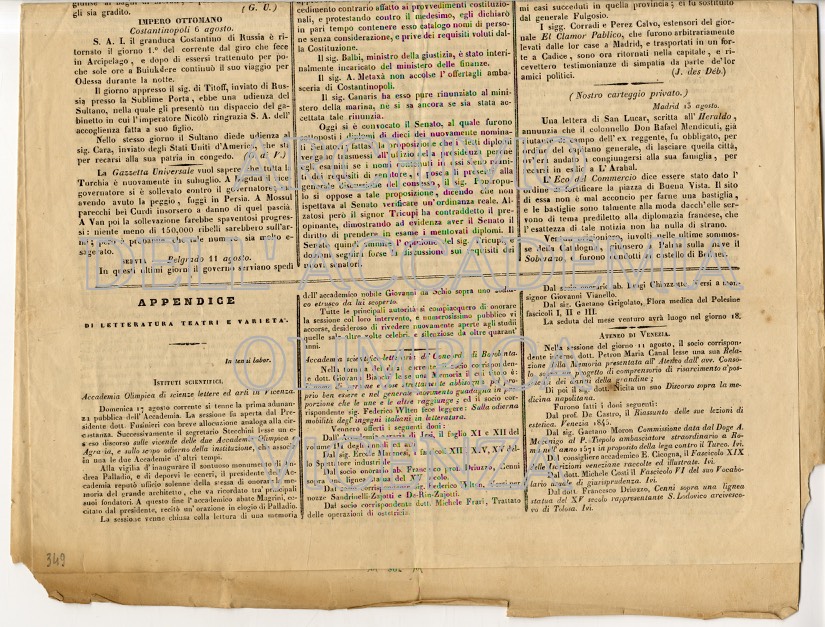 gli sia gradito. (G. U.)
IMPERO OTTOMANO
Costantinopoli 6 agosto.
S. A. I. il granduca Costantino di Russia è ri-
tornato il giorno 1.° del corrente dal giro che fece
in Arcipelago, e dopo di essersi trattenuto per po-
che sole ore a Buiukdere continuò il suo viaggio per
Odessa durante la notte.
Il giorno appresso il sig. di Titoff, inviato di Rus-
sia presso la Sublime Porta, ebbe una udienza del
Sultano, nella quale gli presentò un dispaccio del ga-
binetto in cui l'imperatore Nicolò ringrazia S. A. dell'
accoglienza fatta a suo figlio.
Nello stesso giorno il Sultano diede udienza al
sig. Cara, inviato degli Stati Uniti d'America, che sta
per recarsi alla sua patria in congedo.
La Gazzetta Universale vuol sapere che tutta la
Turchia è nuovamente in subuglio. A Bagdad il vice
governatore si è sollevato contro il governatore, ed
avendo avuto la peggio, fuggì in Persia. A Mossul
parecchi bei Curdi insorsero a danno di quel pascià.
A Van poi la sollevazione farebbe spaventosi progres-
si: niente meno di 150,000 ribelli sarebbero sull'ar-
mi; però è probabile che tale numero sia molto e-
sagerato.
SERVIA Belgrado 11 agosto.
In questi ultimi giorni il governo serviano spedì
bedimento contrario affatto ai provvedimenti costituzio-
nali, e protestando contro il medesimo, egli dichiarò
in pari tempo contenere esso catalogo nomi di perso-
ne senza considerazione, e prive dei requisiti voluti dal-
la Costituzione.
Il sig. Balbi, ministro della giustizia, è stato interi-
nalmente incaricato del ministero delle finanze.
Il sig. A. Metaxà non accolse l'offertagli amba-
sceria di Costantinopoli.
Il sig. Canaris ha esso pure rinunziato al mini-
stero della marina, nè si sa ancora se sia stata ac-
cettata tale rinunzia.
Oggi si è convocato il Senato, al quale furono
sottoposti i diplomi di dieci dei nuovamente nomina-
ti Senatori, e fatta la proposizione che i detti diplomi
vengano trasmessi all'ufizio della presidenza perchè
egli esamini se i nominati in essi siano forni-
ti dei requisiti di senatore, e possa li presenti alla
generale discussione del consesso, il sig. Eupropu-
lo si oppose a tale proposizione, dicendo che non
ispettava al Senato verificare un'ordinanza reale. Al-
zatosi però il signor Tricupi ha contraddetto il pre-
opinante, dimostrando ad evidenza aver il Senato il
diritto di prendere in esame i mentovati diplomi. Il
Senato quindi ammise l'opinione del sig. Tricupi, e
domani seguirà forse la discussione sui requisiti dei
nuovi senatori.
mi casi succeduti in quella provincia; ei fu sostituito
dal generale Fulgosio.
I sigg. Corradi e Perez Calvo, estensori del gior-
nale El Clamor Publico, che furono arbitrariamente
levati dalle lor case a Madrid, e trasportati in un for-
te a Cadice, sono ora ritornati nella capitale, e ri-
cevettero testimonianze di simpatia da parte de'lor
amici politici. (J. des Déb.)
(Nostro carteggio privato.)
Madrid 13 agosto.
Una lettera di San Lucar, scritta all'Heraldo,
annunzia che il colonnello Don Rafael Mendicuti, già
aiutante di campo dell'ex reggente, fu obbligato, per
ordine del capitano generale, di lasciare quella città,
ov'era andato a congiungersi alla sua famiglia, per
recarsi in esilio a L'Arabal.
L'Eco del Commercio dice essere stato dato l'
ordine di fortificare la piazza di Buena Vista. Il sito
di essa non è mal acconcio per farne una bastiglia,
e le bastiglie sono talmente alla moda dacch'elle ser-
vono di arena prediletta alla diplomazia francese, che
l'esattezza di tale notizia non ha nulla di strano.
Ventuno prigionieri, involti nelle ultime sommos-
se della Catalogna, giunsero a Palma sulla nave il
Soberano, e furono condotti al castello di Belver.
APPENDICE
DI LETTERATURA TEATRI E VARIETA'.
In tenui labor.
ISTITUTI SCIENTIFICI.
Accademia Olimpica di scienze lettere ed arti in Vicenza.
Domenica 17 agosto corrente si tenne la prima adunan-
za pubblica dell'Accademia. La sessione fu aperta dal Pre-
sidente dott. Fusinieri con breve allocuzione analoga alla cir-
costanza. Successivamente il segretario Stecchini lesse un e-
suo discorso sulle vicende delle due Accademie Olimpica e
Agraria, e sullo scopo odierno della instituzione, fusa
in una le due Accademie d'altri tempi.
Alla vigilia d'inaugurare il sontuoso monumento di An-
drea Palladio, e di deporvi le ceneri, il presidente dell'Ac-
cademia reputò ufficio solenne della stessa di onorar la me-
moria del grande architetto, che va ricordato tra i principali
suoi fondatori. A questo fine l'accademico abate Magrini, ec-
citato dal presidente, recitò un'orazione in elogio di Palladio.
La sessione venne chiusa colla lettura di una memoria
dell'accademico nobile Giovanni da Schio sopra uno
etrusco da lui scoperto.
Tutte le principali autorità si compiacquero di onorare
la sessione col loro intervento, e numerosissimo pubblico vi
accorse, desideroso di rivedere nuovamente aperte agli studii
quelle sale altre volte celebri, e silenziose da oltre quarant'
anni.
Accademia scientifico-letteraria de' Concordi di Bovolenta.
Nella tornata del giorno corrente il socio corrisponden-
te dott. Giorgio Bianchi
prio ben essere e nel generale movimento guadagnano in pro-
porzione che le une e le altre raggiunge; ed il socio cor-
rispondente sig. Federico Wlten fece leggere: Sulla odierna
mobilità degl'ingegni italiani in letteratura.
Vennero offerti i seguenti doni:
Dall'Accademia agraria di Jesi, il foglio XI e XII del
volume IV degli annali ed atti.
Dal sig. Ercole Marnesi, i fascicoli XIII, XIV, XV del-
lo Spettatore industriale.
Dal socio onorario ab. Francesco prof. Driuzzo, Cenni
sopra una lignea statua del XV secolo.
Dal socio corrispondente sig. Federico Wlten, Versi per
nozze Sandrinelli-Zajotti e De-Rin-Zajotti.
Dal socio corrispondente dott. Michele Frari, Trattato
delle operazioni di ostetricia.
Dal socio onorario ab. Luigi Chiozzotto, Versi a mon-
signor Giovanni Vianello.
Dal sig. Gaetano Grigolato, Flora medica del Polesine
fascicoli I, II e III.
La seduta del mese venturo avrà luogo nel giorno 18.
ATENEO DI VENEZIA.
Nella sessione del giorno 11 agosto, il socio corrispon-
dente interno dott. Petron Maria Canal lesse una sua Rela-
zione della Memoria presentata all'Ateneo dall'avv. Conso-
lo, sopra un progetto di comprensorio di risarcimento a pos-
sidenti dei danni della grandine;
Di poi il sig. dott. Nicia un suo Discorso sopra la me-
dicina napolitana.
Furono fatti i doni seguenti:
Dal prof. De Castro, il Riassunto delle sue lezioni di
estetica. Venezia 1845.
Dal sig. Gaetano Moron Commissione data dal Doge A.
Mocenigo al P. Tiepolo ambasciatore straordinario a Ro-
ma nell'anno 1571 in proposito della lega contro il Turco. Ivi.
Dal consigliere accademico E. Cicogna, il Fascicolo XIX
delle Iscrizioni veneziane raccolte ed illustrate. Ivi.
Dal dott. Michele Costi il Fascicolo VI del suo Vocabo-
lario azuale di giurisprudenza. Ivi.
Dal dott. Francesco Driuzzo, Cenni sopra una lignea
statua del XV secolo rappresentante S. Lodovico arcivesco-
vo di Tolosa. Ivi.
349
ARCHIVIO
DELL'ACCADEMIA
OLIMPICA
VICENZA